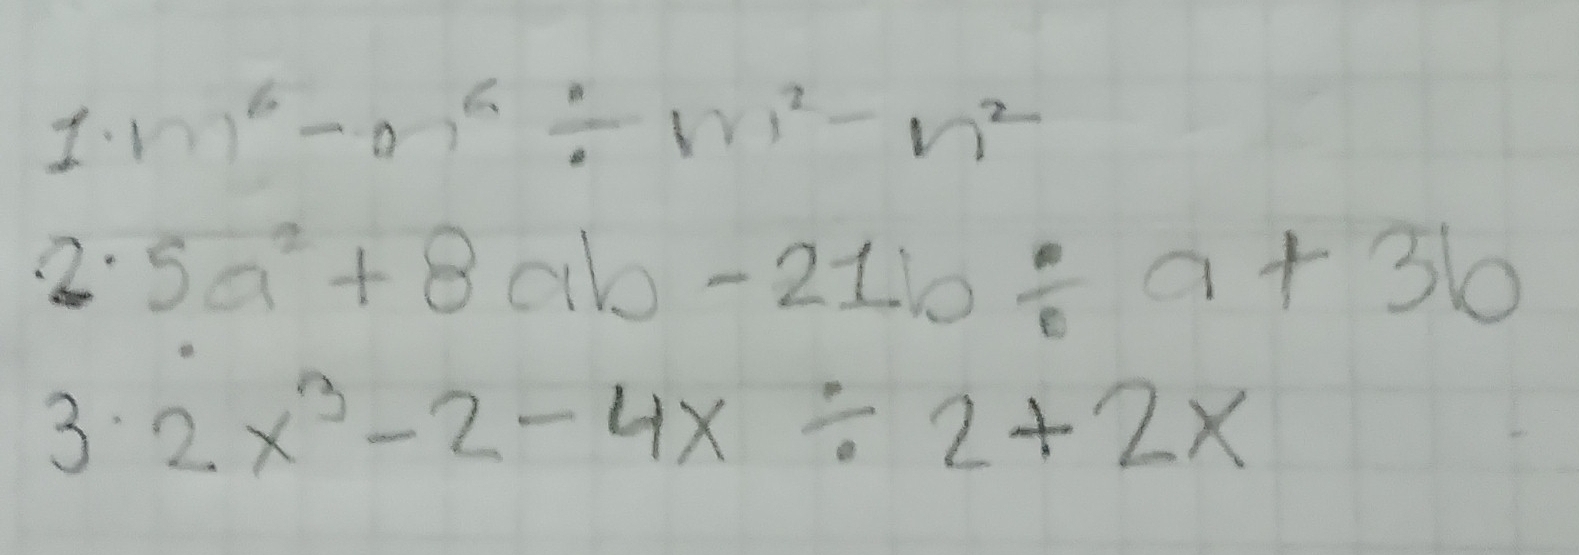 1. m⁶ - n⁶ ÷ m² - n²
2. 5a² + 8ab - 21b ÷ a + 3b
3. 2x³ - 2 - 4x ÷ 2 + 2x